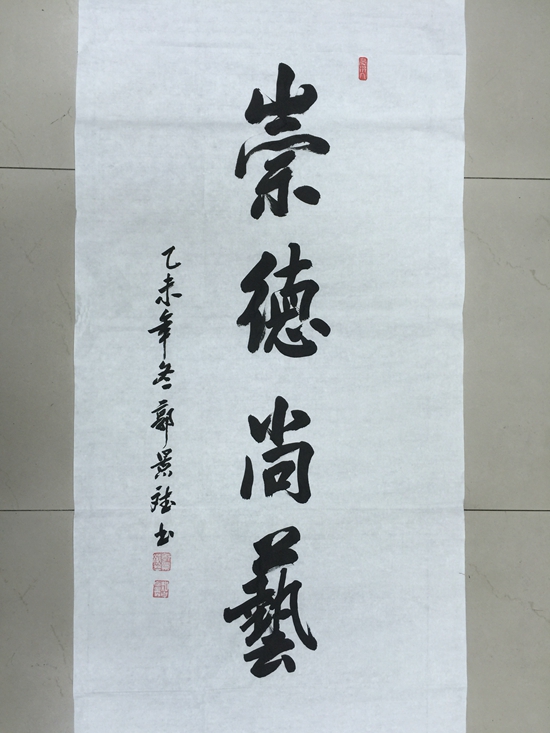 崇德尚藝
乙未年冬郭景猛书